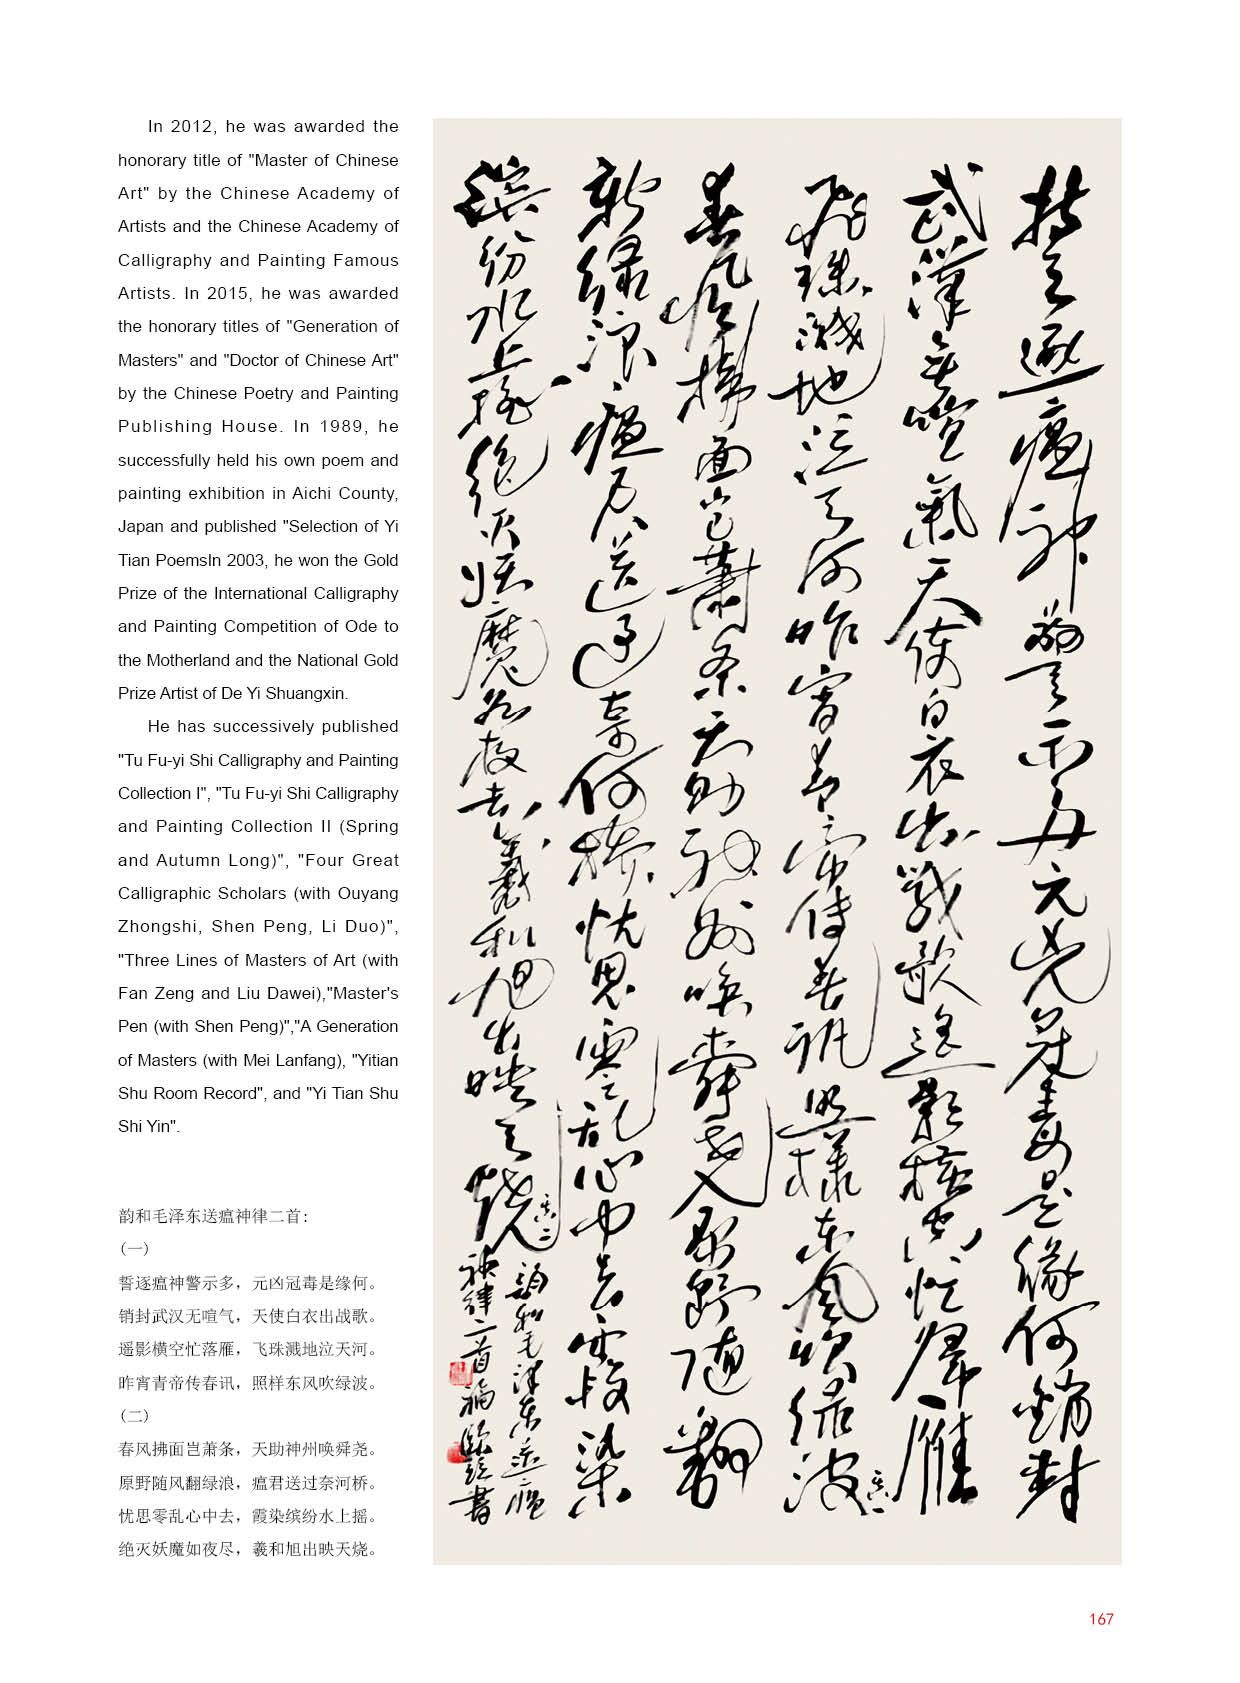 In 2012, he was awarded the
honorary title of "Master of Chinese
Art" by the Chinese Academy of
Artists and the Chinese Academy of
Calligraphy and Painting Famous
Artists. In 2015, he was awarded
the honorary titles of "Generation of
Masters" and "Doctor of Chinese Art"
by the Chinese Poetry and Painting
Publishing House. In 1989, he
successfully held his own poem and
painting exhibition in Aichi County,
Japan and published "Selection of Yi
Tian PoemsIn 2003, he won the Gold
Prize of the International Calligraphy
and Painting Competition of Ode to
the Motherland and the National Gold
Prize Artist of De Yi Shuangxin.
He has successively published
"Tu Fu-yi Shi Calligraphy and Painting
Collection I", "Tu Fu-yi Shi Calligraphy
and Painting Collection II (Spring
and Autumn Long)", "Four Great
Calligraphic Scholars (with Ouyang
Zhongshi, Shen Peng, Li Duo)",
"Three Lines of Masters of Art (with
Fan Zeng and Liu Dawei),"Master's
Pen (with Shen Peng)","A Generation
of Masters (with Mei Lanfang), "Yitian
Shu Room Record", and "Yi Tian Shu
Shi Yin".
韵和毛泽东送瘟神律二首:
(一)
誓逐瘟神警示多，元凶冠毒是缘何。
销封武汉无喧气，天使白衣出战歌。
遥影横空忙落雁，飞珠溅地泣天河。
昨宵青帝传春讯，照样东风吹绿波。
(二)
春风拂面岂萧条，天助神州唤舜尧。
原野随风翻绿浪，瘟君送过奈何桥。
忧思零乱心中去，霞染缤纷水上摇。
绝灭妖魔如夜尽，羲和旭出映天烧。
誓逐瘟神警示多元凶冠毒是缘何銷封
武漢無喧氣天使白衣出戰歌遥影橫空忙落雁
飛珠濺地泣天河昨宵青帝傳春訊照樣東風吹綠波 其一
春風拂面豈蕭條天助神州喚舜堯原野隨翻
新綠浪瘟君送過奈何橋忧思零乱心中去霞染
缤纷水上摇绝灭妖魔如夜盡羲和旭出映天燒 其二
韵和毛泽东送瘟
神律二首
167